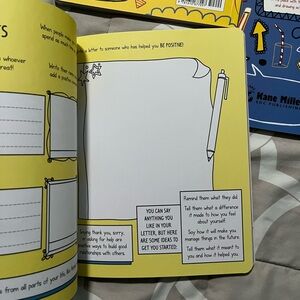 TS
When people
spend as much
whoever
reat!
Write them
add a positive
s from all parts of your life, like
letter to someone who has helped you BE POSITIVE!
Saying thank you, sorry,
or asking for help are
ways to build good
relationships with others.
YOU CAN SAY
ANYTHING YOU
LIKE IN YOUR
LETTER, BUT HERE
ARE SOME IDEAS TO
GET YOU STARTED:
Remind them what they did.
Tell them what a difference
it made to how you feel
about yourself.
Say how it will make you
manage things in the future.
Tell them what it meant to
you and how it helped you.
Kane Mille
EDC PUBLISHING